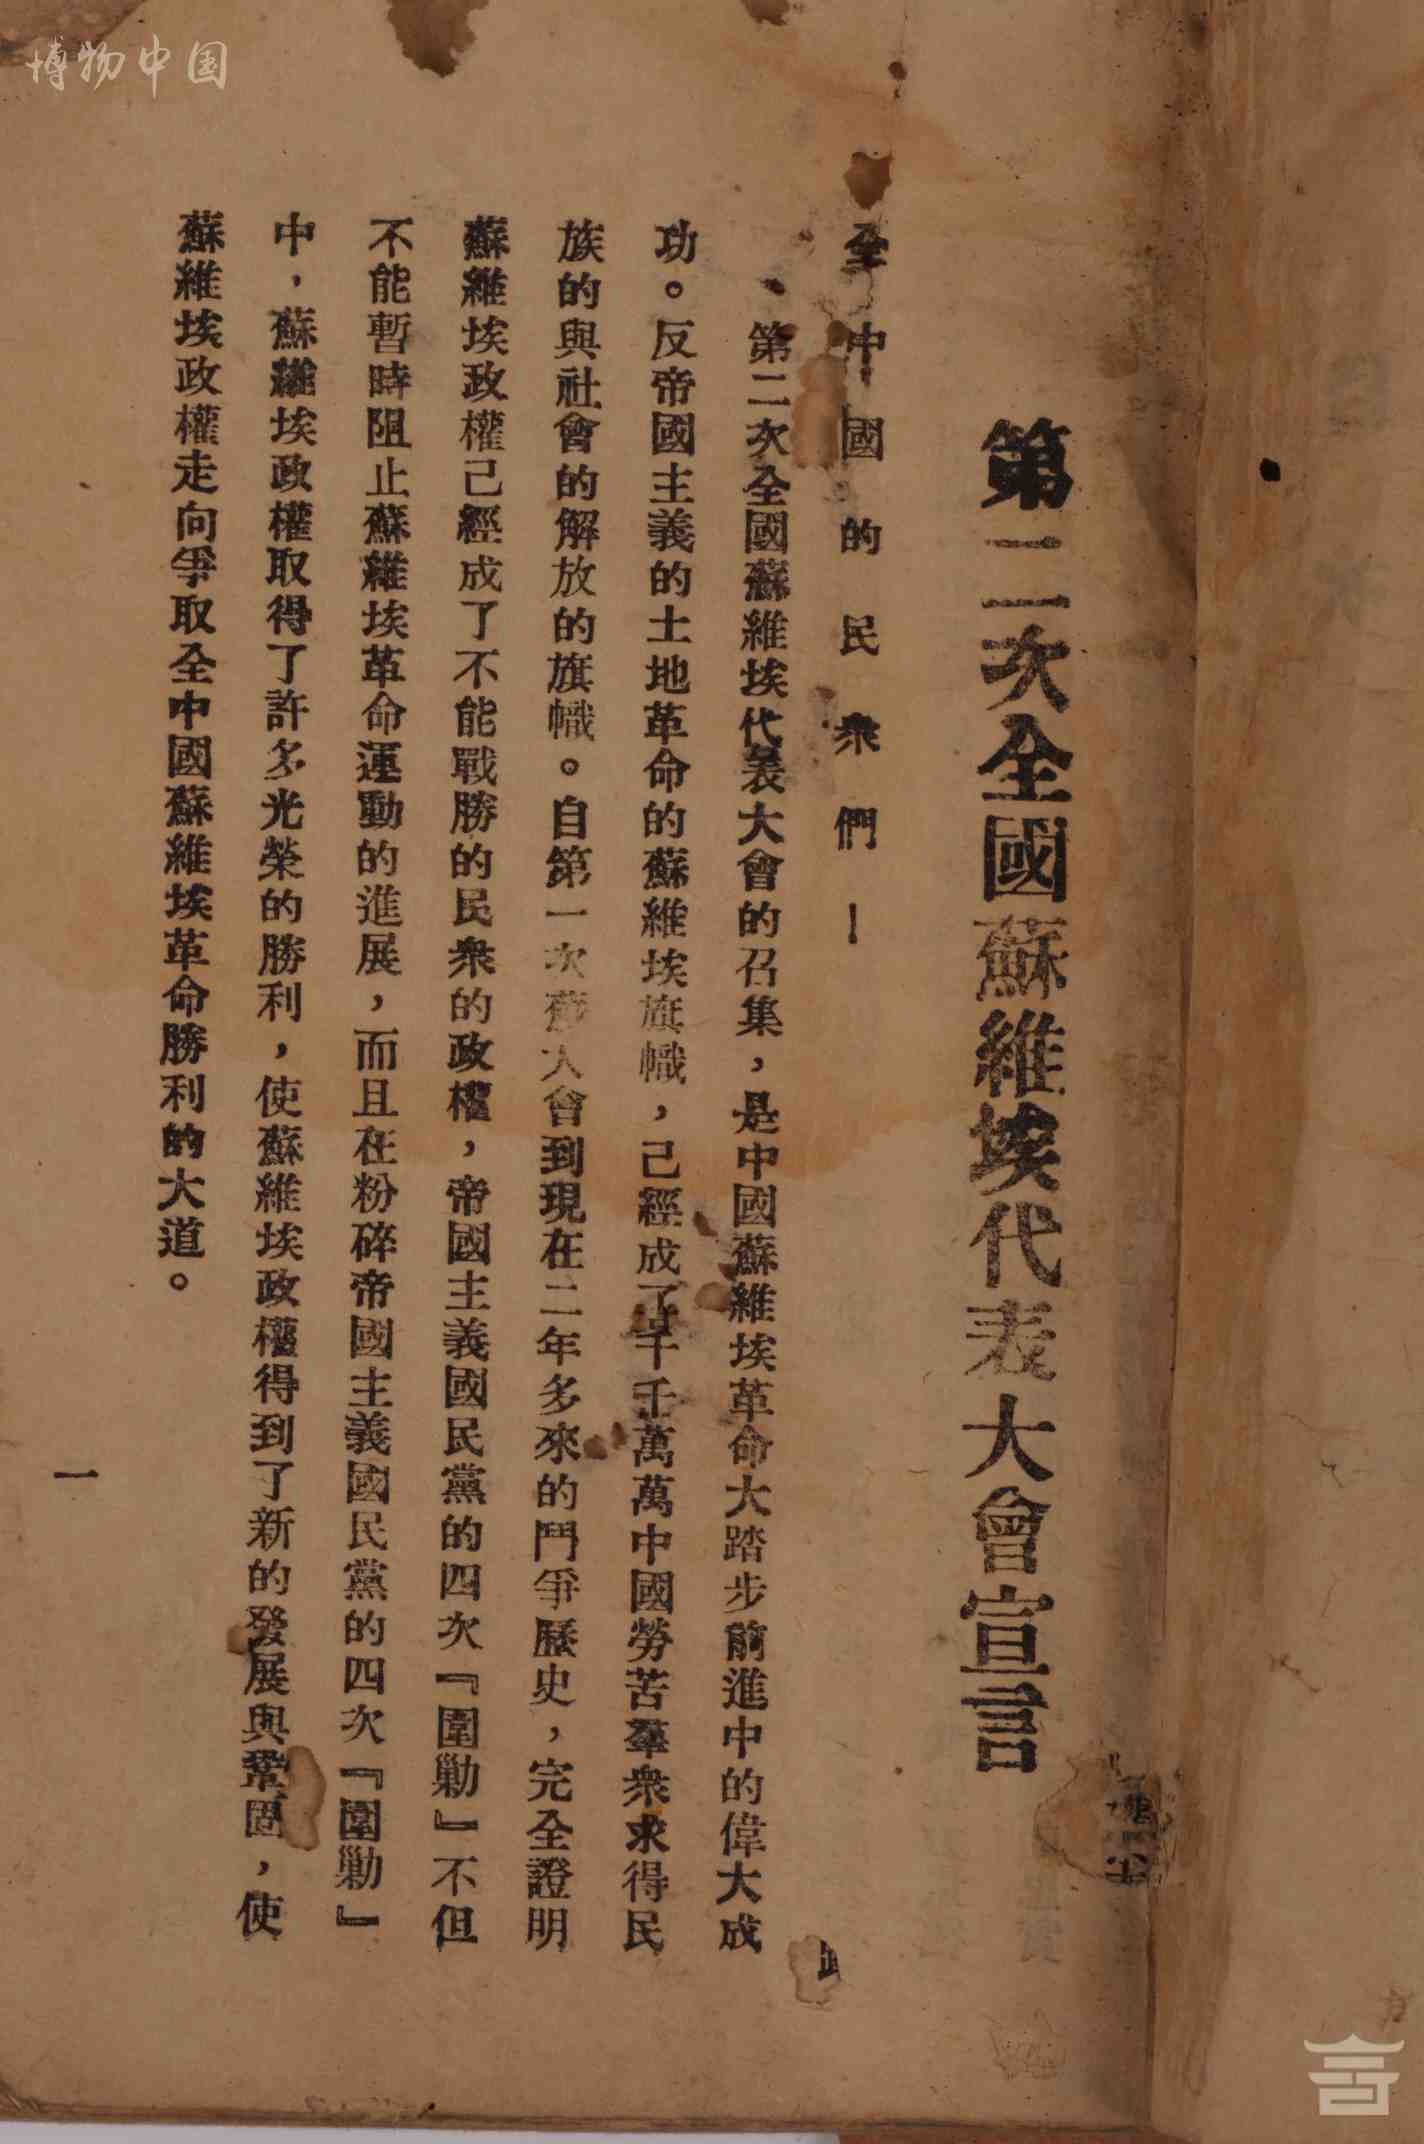 博物中国
第二次全國蘇維埃代表大會宣言
全中國的民衆們！
第二次全國蘇維埃代表大會的召集，是中國蘇維埃革命大踏步前進中的偉大成
功。反帝國主義的土地革命的蘇維埃旗幟，己經成了千千萬萬中國勞苦羣衆求得民
族的與社會的解放的旗幟。自第一次蘇大會到現在二年多來的鬥爭歷史，完全證明
蘇維埃政權己經成了不能戰勝的民衆的政權，帝國主義國民黨的四次『圍勦』不但
不能暫時阻止蘇維埃革命運動的進展，而且在粉碎帝國主義國民黨的四次『圍勦』
中，蘇維埃政權取得了許多光榮的勝利，使蘇維埃政權得到了新的發展與鞏固，使
蘇維埃政權走向爭取全中國蘇維埃革命勝利的大道。
一